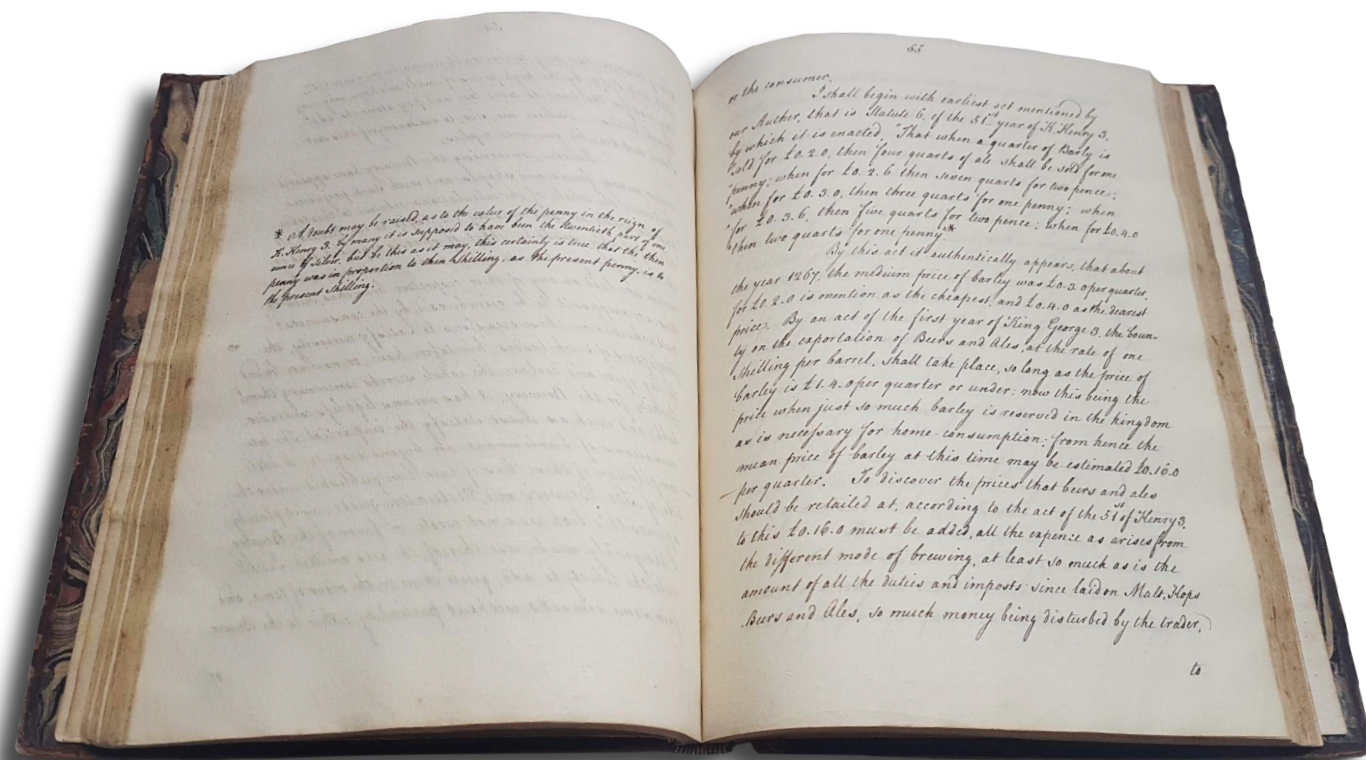 * A doubt may be raised, as to the value of the penny in the reign of
K. Henry 3. by many it is supposed to have been the twentieth part of one
ounce of silver, but be this as it may, this certainly is true, that the then
penny was in proportion to then shilling, as the present penny, is to
the present shilling.
55
or the consumer.
I shall begin with earliest act mentioned by
our Author, that is Statute 6, of the 51st year of K. Henry 3.
by which it is enacted, "That when a quarter of Barly is
"sold for £0.2.0, then four quarts of ale shall be sold for one
"penny; when for £0.2.6 then seven quarts for two pence;
"when for £0.3.0, then three quarts for one penny; when
"for £0.3.6, then five quarts for two pence; when for £0.4.0
"then two quarts for one penny."*
By this act it authentically appears, that about
the year 1267, the medium price of barley was £0.3.0 per quarter,
for £0.2.0 is mention as the cheapest, and £0.4.0 as the dearest
price. By an act of the first year of King George 3. the boun-
ty on the exportation of Beers and Ales, at the rate of one
shilling per barrel, shall take place, so long as the price of
barley is £1.4.0 per quarter or under: now this being the
price when just so much barley is reserved in the kingdom
as is necessary for home-consumption; from hence the
mean price of barley at this time may be estimated £0.16.0
per quarter. To discover the prices that beers and ales
should be retailed at, according to the act of the 51st of Henry 3.
to this £0.16.0 must be added, all the expence as arises from
the different mode of brewing, at least so much as is the
amount of all the duties and imposts since laid on Malt, Hops
Beers and Ales, so much money being disturbed by the trader,
to